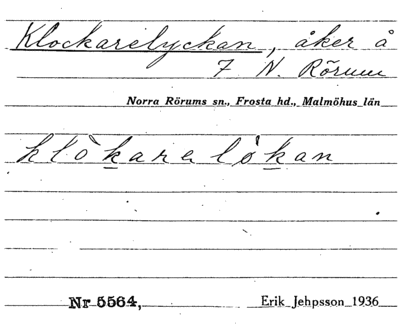 Klockarelyckan, åker å
7 N. Rörum
Norra Rörums sn., Frosta hd., Malmöhus län
klòkarelỳkan
Nr 5564,
Erik Jehpsson 1936